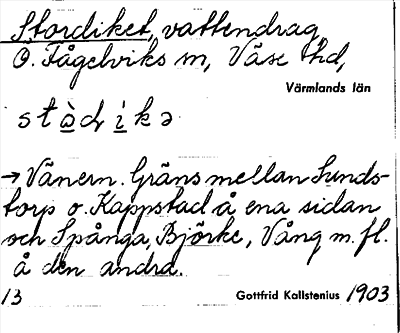 Stordiket, vattendrag,
Ö. Fågelviks sn, Väse hd,
Värmlands län
stòdikə
→ Vänern. Gräns mellan Sunds-
torp o. Kappstad å ena sidan
och Spånga, Björke, Vång m. fl.
å den andra.
13 Gottfrid Kallstenius 1903